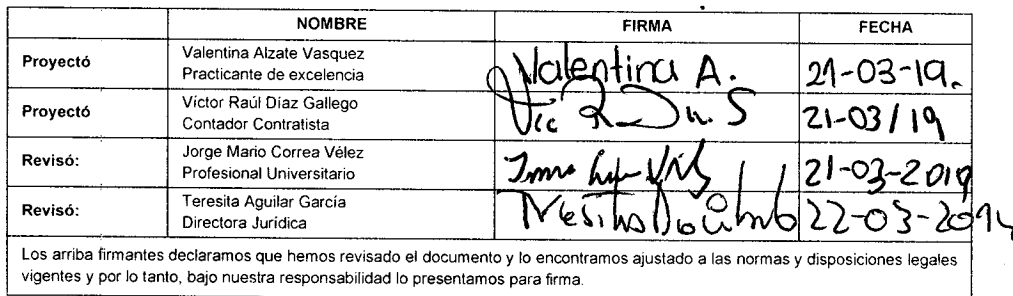 NOMBRE FIRMA FECHA
Proyectó
Valentina Alzate Vasquez
Practicante de excelencia
Valentina A.
21-03-19.
Proyectó
Víctor Raúl Díaz Gallego
Contador Contratista
21-03/19
Revisó:
Jorge Mario Correa Vélez
Profesional Universitario
21-03-2019
Revisó:
Teresita Aguilar García
Directora Jurídica
22-03-2019
Los arriba firmantes declaramos que hemos revisado el documento y lo encontramos ajustado a las normas y disposiciones legales
vigentes y por lo tanto, bajo nuestra responsabilidad lo presentamos para firma.